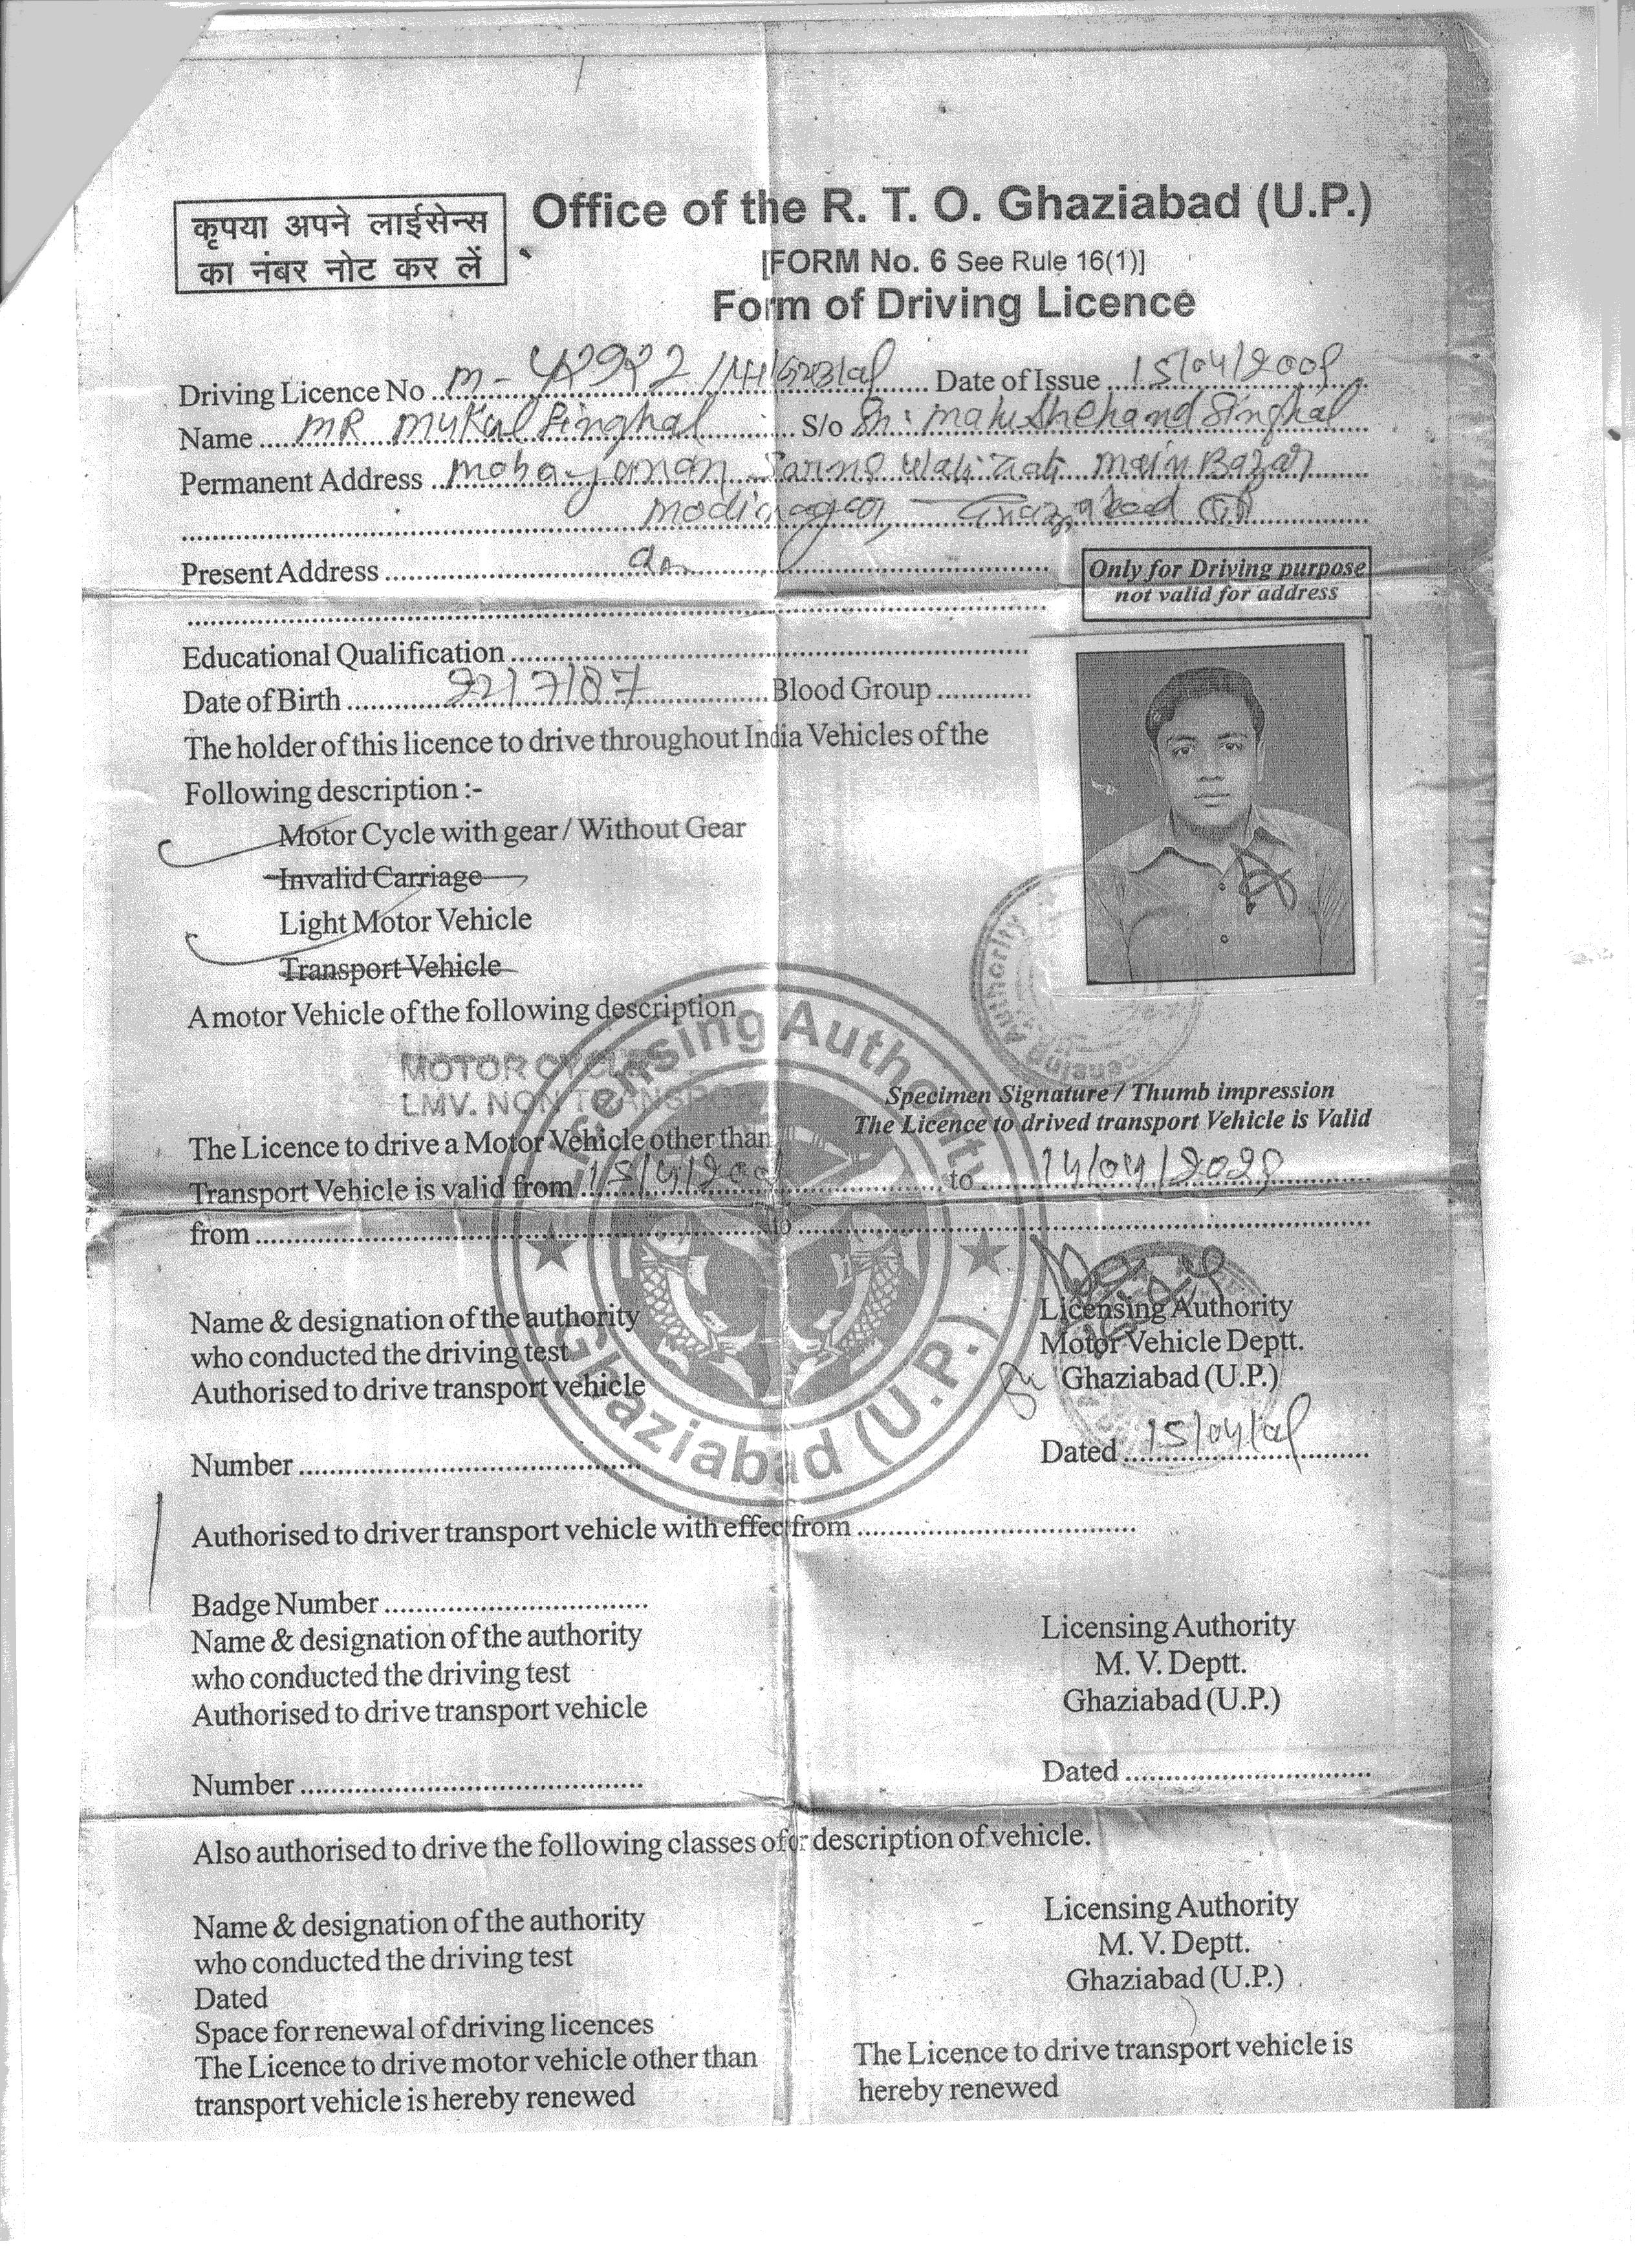 कृपया अपने लाईसेन्स
का नंबर नोट कर लें
Office of the R. T. O. Ghaziabad (U.P.)
[FORM No. 6 See Rule 16(1)]
Form of Driving Licence
Driving Licence No. M- Date of Issue 15/04/200
Name MR Mukul Singhal S/o Singhal
Permanent Address Main Bazar
Modinagar, Ghaziabad
Present Address
Only for Driving purpose
not valid for address
Educational Qualification
Date of Birth 22/7/87 Blood Group
The holder of this licence to drive throughout India Vehicles of the
Following description :-
Motor Cycle with gear / Without Gear
Invalid Carriage
Light Motor Vehicle
Transport Vehicle
A motor Vehicle of the following description
MOTOR CYCLE
LMV. NON TRANSPORT
Licensing Authority
Specimen Signature / Thumb impression
The Licence to drived transport Vehicle is Valid
The Licence to drive a Motor Vehicle other than
Transport Vehicle is valid from 15/4/200 to 14/04/2028
from to
Name & designation of the authority
who conducted the driving test
Authorised to drive transport vehicle
Licensing Authority
Motor Vehicle Deptt.
Ghaziabad (U.P.)
Licensing Authority
Ghaziabad (U.P.)
Number
Dated 15/04/
Authorised to driver transport vehicle with effect from
Badge Number
Name & designation of the authority
who conducted the driving test
Authorised to drive transport vehicle
Licensing Authority
M. V. Deptt.
Ghaziabad (U.P.)
Number
Dated
Also authorised to drive the following classes of or description of vehicle.
Name & designation of the authority
who conducted the driving test
Dated
Licensing Authority
M. V. Deptt.
Ghaziabad (U.P.)
Space for renewal of driving licences
The Licence to drive motor vehicle other than
transport vehicle is hereby renewed
The Licence to drive transport vehicle is
hereby renewed